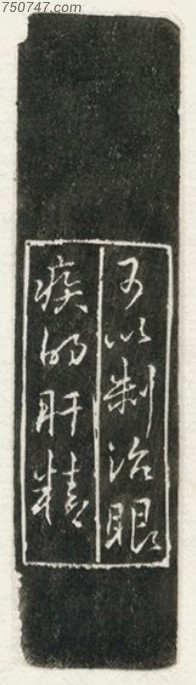 750747.com
可以制治眼
疾的肝精